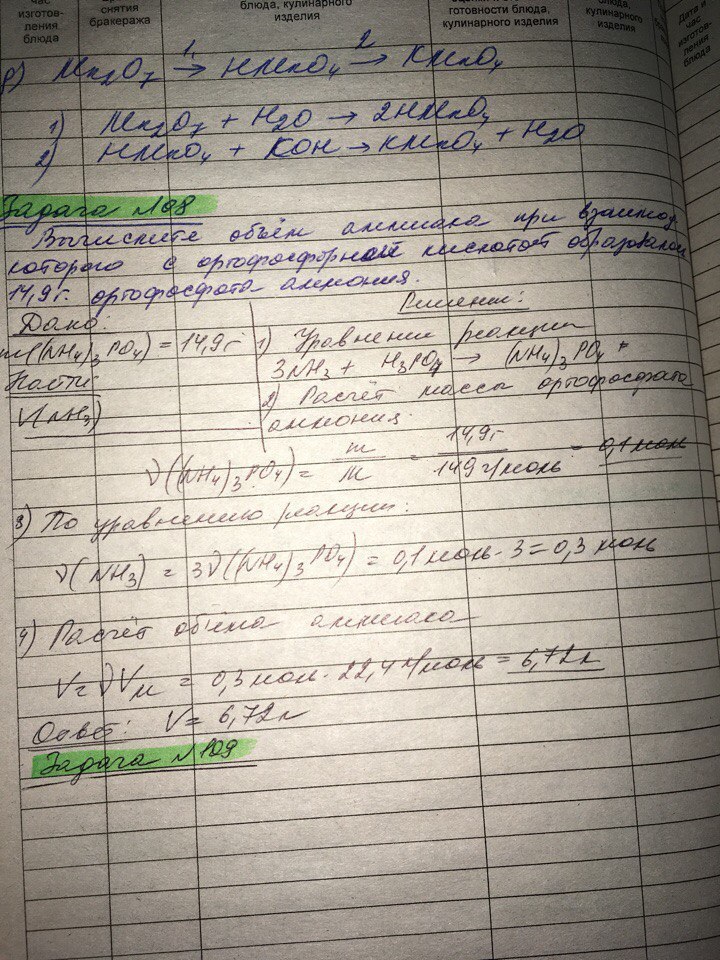 час изготов-ления блюда
снятия бракеража
блюда, кулинарного изделия
готовности блюда, кулинарного изделия
блюда, кулинарного изделия
Дата и час изготов-ления блюда
р) Mn2O7 →1 HMnO4 →2 KMnO4
1) Mn2O7 + H2O → 2HMnO4
2) HMnO4 + KOH → KMnO4 + H2O
Задача №108
Вычислите объём аммиака при взаимод.
которого с ортофосфорной кислотой образовалось
14,9г. ортофосфата аммония.
Дано:
m((NH4)3PO4) = 14,9г
Найти:
V(NH3)
Решение:
1) Уравнение реакции
3NH3 + H3PO4 → (NH4)3PO4
2) Расчёт массы ортофосфата
аммония.
ν((NH4)3PO4) = m/M = 14,9г/149г/моль = 0,1моль
3) По уравнению реакции:
ν(NH3) = 3ν((NH4)3PO4) = 0,1моль · 3 = 0,3 моль
4) Расчёт объёма аммиака
V = νVм = 0,3моль · 22,4л/моль = 6,72л
Ответ: V = 6,72л
Задача №109